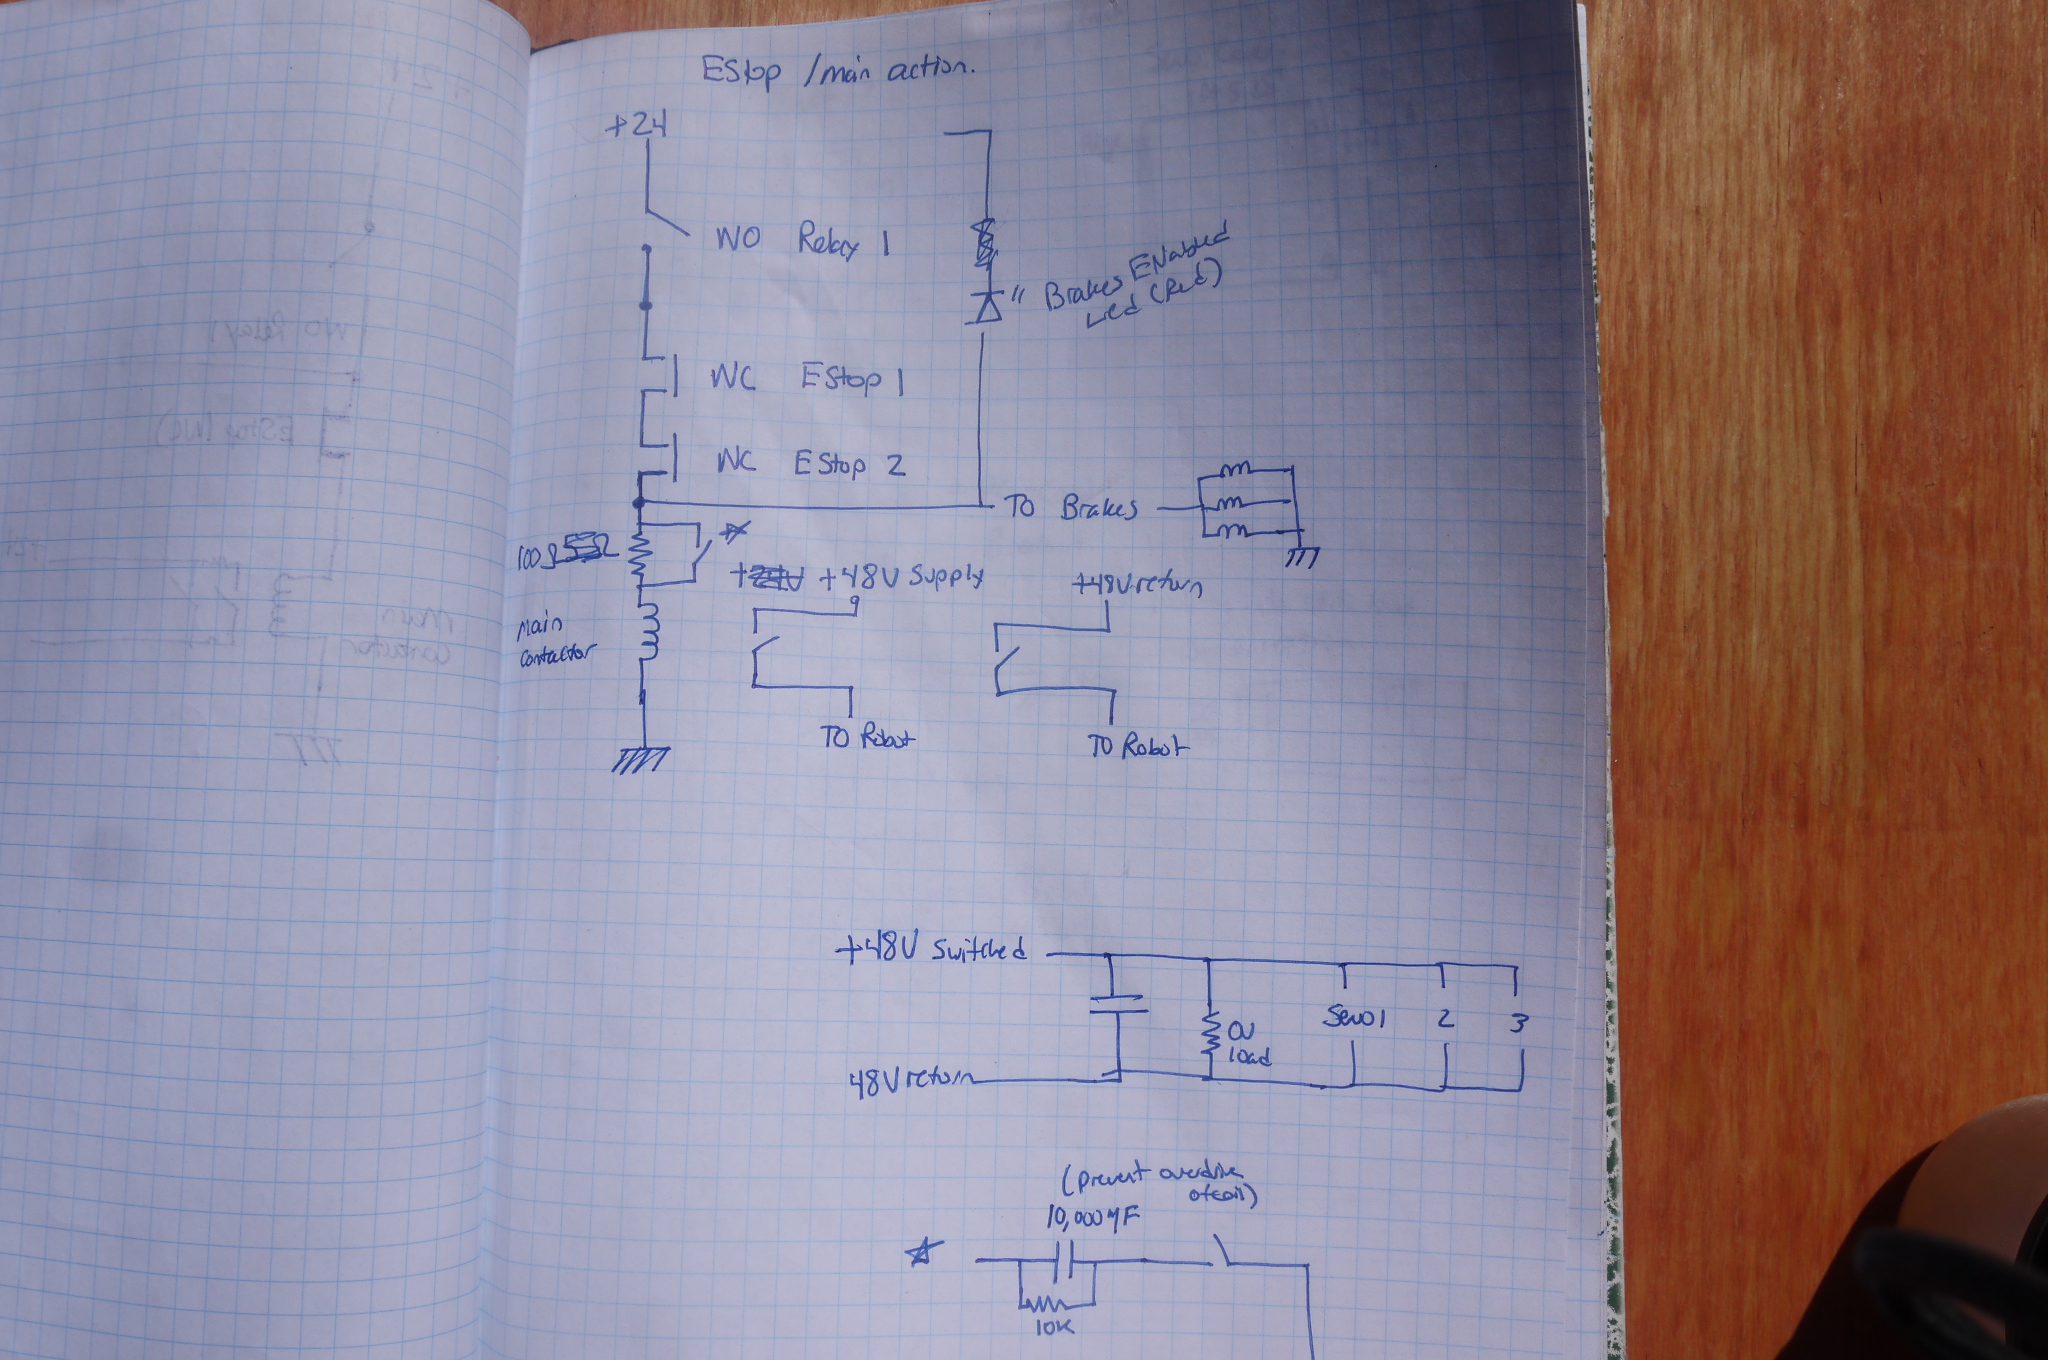 EStop / main action.
+24
NO Relay 1
" Brakes ENabled
Led (Red)
NC EStop 1
NC EStop 2
TO Brakes
100Ω 55Ω
+24V +48V Supply
+48V return
Main
Contactor
TO Robot
TO Robot
+48V Switched
Servo 1 2 3
OV
load
48V return
(prevent overdrive
of coil)
10,000μF
10K